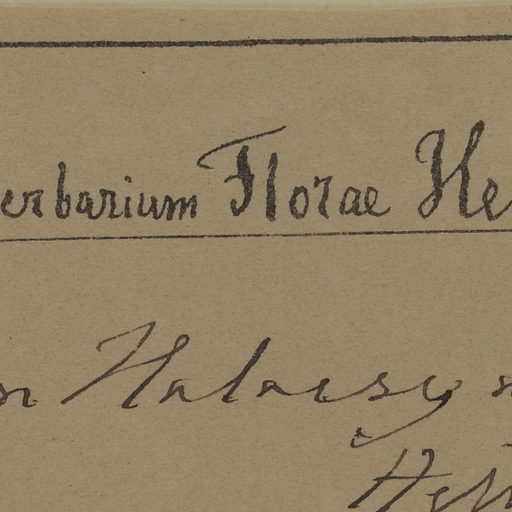 erbarium Florae He
Halacsy